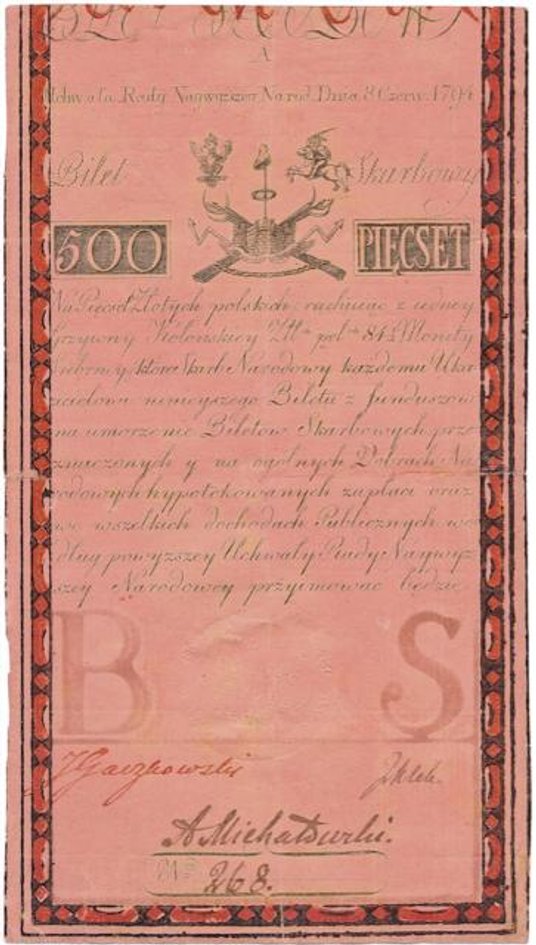 A
Uchwała Rady Naywyższey Narod. Dnia 8 Czerw. 1794
Bilet Skarbowy
500 PIĘCSET
Na Pięcset Złotych polskich, rachuiąc z iedney
Grzywny Kolońskiey Złt pol 84½ Monety
Srebrney, ktore Skarb Narodowy każdemu Oka-
zicielowi ninieyszego Biletu z funduszow
na umorzenie Biletow Skarbowych prze-
znaczonych y na ogolnych Dobrach Na-
rodowych hypotekowanych zapłaci oraz
we wszelkich dochodach Publicznych we-
dług powyzszey Uchwały Rady Naywyż-
szey Narodowey przyimować będzie
B S
J Gaczkowski
A Michałowski.
268.